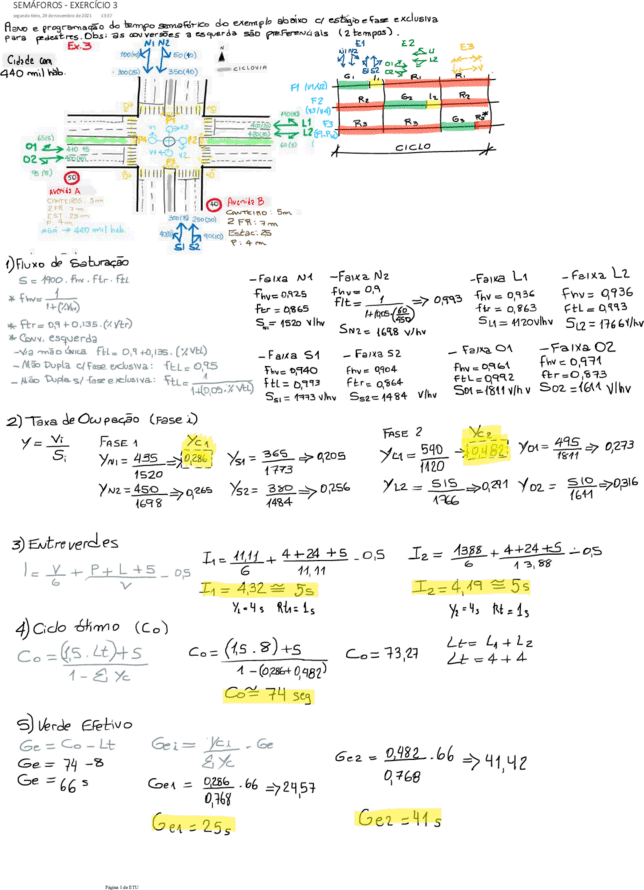 SEMÁFOROS - EXERCÍCIO 3
segunda-feira, 29 de novembro de 2021 13:37
Plano e programação do tempo semafórico do exemplo abaixo c/ estágio e fase exclusiva
para pedestres. Obs: as conversões a esquerda são preferenciais (2 tempos).
Ex.3
N1 N2
Cidade com
440 mil hab.
350(40)
CICLOVIA
E1 E2 E3
N1 N2
S1 S2
L1
L2
O1
O2
G1 I1 R1
F1 (V1/V2)
R2 G2 I2 R2
F2
R3 R3 G3
F3
CICLO
L1
L2
O1
O2
50
40
AVENIDA A
CANTEIRO: 5m
2 FR: 7m
EST: 25m
P: 4m
→ 440 mil hab.
Avenida B
CANTEIRO: 5m
2 FR: 7m
Estac: 25
P: 4m
S1 S2
1) Fluxo de Saturação
S = 1900 . fhv . ftr . ftl
* fhv = 1 / 1+(%Vhv)
* ftr = 0,9 + 0,135 . (%Vtr)
* Conv. esquerda
- Via mão única ftl = 0,9 + 0,135. (%VTL)
- Mão Dupla c/ fase exclusiva: ftl = 0,95
- Mão Dupla s/ fase exclusiva: ftl = 1 / 1+(0,05.%VTL)
- Faixa N1
fhv = 0,925
ftr = 0,865
SN1 = 1520 V/hv
- Faixa N2
fhv = 0,9
Flt = 1 / 1+(0,05.(60/450)) ⇒ 0,993
SN2 = 1698 V/hv
- Faixa L1
fhv = 0,936
ftr = 0,863
SL1 = 1120V/hv
- Faixa L2
Fhv = 0,936
FLL = 0,993
SL2 = 1766V/hv
- Faixa S1
fhv = 0,940
ftl = 0,993
SS1 = 1773 V/hv
- Faixa S2
fhv = 0,904
ftr = 0,864
SS2 = 1484 V/hv
- Faixa O1
fhv = 0,961
FtL = 0,992
SO1 = 1811 V/hv
- Faixa O2
fhv = 0,971
ftr = 0,873
SO2 = 1611 V/hv
2) Taxa de Ocupação (Fase i)
Y = Vi / Si
FASE 1 YC1
YN1 = 435 / 1520 ⇒ 0,286
YN2 = 450 / 1698 ⇒ 0,265
YS1 = 365 / 1773 ⇒ 0,205
YS2 = 380 / 1484 ⇒ 0,256
FASE 2 YC2
YL1 = 540 / 1120 ⇒ 0,482
YL2 = 515 / 1766 ⇒ 0,291
YO1 = 495 / 1811 ⇒ 0,273
YO2 = 510 / 1611 ⇒ 0,316
3) Entreverdes
I = V / 6 + P + L + 5 / V - 0,5
I1 = 11,11 / 6 + 4+24+5 / 11,11 - 0,5
I1 = 4,32 ≅ 5s
Y1 = 4s Rt1 = 1s
I2 = 1388 / 6 + 4+24+5 / 13,88 - 0,5
I2 = 4,19 ≅ 5s
Y2 = 4s Rt = 1s
4) Ciclo ótimo (Co)
Co = (1,5 . Lt) + 5 / 1 - Σ Yc
Co = (1,5 . 8) + 5 / 1 - (0,286+0,482)
Co = 73,27
Co ≅ 74 seg
Lt = L1 + L2
Lt = 4 + 4
5) Verde Efetivo
Ge = Co - Lt
Ge = 74 - 8
Ge = 66 s
Gei = Yci / Σ Yc . Ge
Ge1 = 0,286 / 0,768 . 66 ⇒ 24,57
Ge1 = 25s
Ge2 = 0,482 / 0,768 . 66 ⇒ 41,42
Ge2 = 41s
Página 1 de ETU